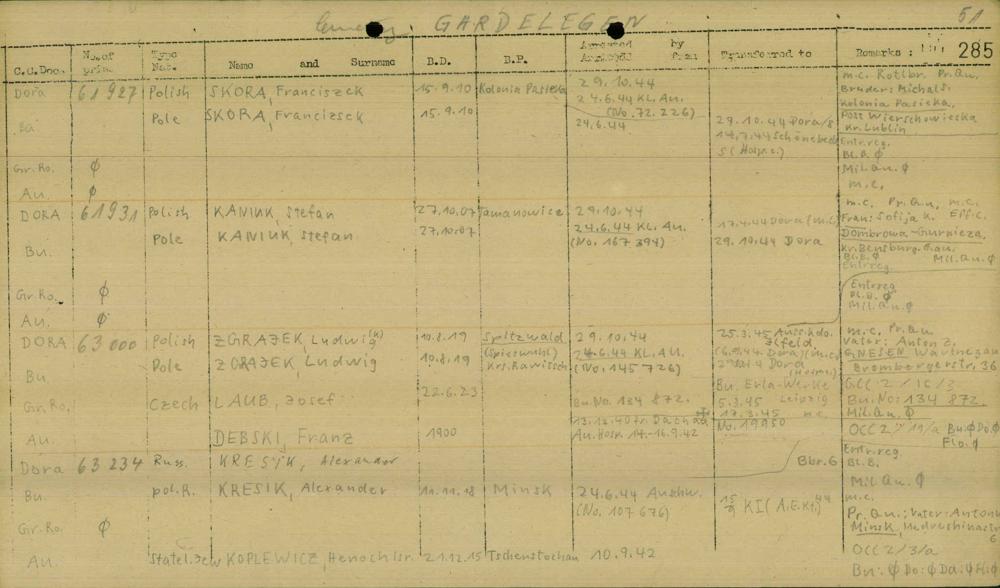 Cemetery GARDELEGEN 51
C.C.Doc. No. of pris. Type Nat. Name and Surname B.D. B.P. Arrested Arrived by from Transferred to Remarks : 285
Dora 61927 Polish SKORA, Franciszek 15.9.10 Kolonia Pasieka 29.10.44 m.c. Rotlbr. Pr.Qu.
24.6.44 KL. Au. Bruder: Michal S.
Pole SKORA, Franciszek 15.9.10 (No. 72.226) Kolonia Pasieka,
Bu 24.6.44 29.10.44 Dora/S Post Wierschowieska
14.7.44 Schönebeck Kr. Lublin
S (Hosp.c.) Entr.reg.
Bl.B. ∅
Gr.Ro. ∅ Mil.Qu. ∅
Au. ∅ m.c.
DORA 61931 Polish KANIUK, Stefan 27.10.07 Jamanowice 29.10.44 m.c. Pr.Qu. m.c.
24.6.44 KL. Au. 17.4.44 Dora (m.c.) Frau: Sofija K. Eff.c.
Pole KANIUK, Stefan 27.10.07 (No. 167 394) 29.10.44 Dora Dombrowa-Gurnieza,
Bu. Kr. Bensburg. Gau.
Bl.B. ∅ Mil.Qu. ∅
Entr.reg.
Gr.Ro. ∅ Entr.reg.
Bl.B. ∅
Au. ∅ Mil.Qu. ∅
DORA 63000 Polish ZGRAJEK, Ludwig (k) 10.8.19 Spitzwald 29.10.44 25.3.45 Auss.kdo. m.c. Pr.Qu.
Ilfeld Vater: Anton Z.
Pole ZGRAJEK, Ludwig 10.8.19 (Spieswahl) 24.6.44 KL. AU. (6.9.44 Dora)(m.c.) GNESEN Warthegau
Bu Krs. Rawisch (No. 145 726) 29.10.4 Dora Brombergerstr. 36
(Hosp.)
22.6.23 Bu. Erla-Werke GCC 2 / IC / 3
Gr.Ro. Czech LAUB, Josef Bu.No. 134 872. Leipzig Bu.No: 134 872
5.3.45 Mil.Qu. ∅
13.12.40 fr. Dachau 17.3.45 m.c.
Au. DEBSKI, Franz 1900 Au. Hosp. 14.-16.9.42 No. 19950 OCC 2 / 11/a Bu.∅ Do.∅
Flo. ∅
Dora 63234 Russ. KRESIK, Alexander Bbr.6 Entr.reg.
Bl.B.
Mil.Qu. ∅
Bu. pol.R. KRESIK, Alexander 14.11.18 Minsk 24.6.44 Auschw. m.c.
(No. 107 676) 15/9 KI (A.E.Kt.) 44 Pr.Qu.: Vater: Anton
Gr.Ro. ∅ Minsk,
6
Au. Statel.Jew KOPLEWICZ, Henoch Isr. 21.12.15 Tschenstochau 10.9.42 OCC 2/3/a
Bu: ∅ Do: ∅ Da: ∅ Fl: ∅